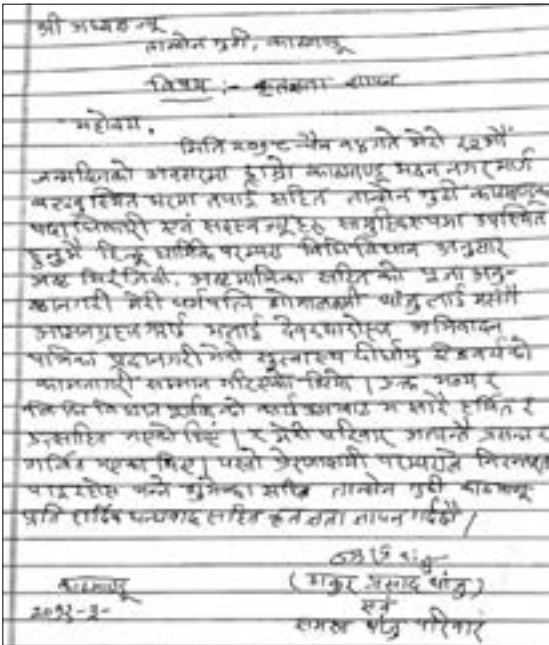 श्री अध्यक्ष ज्यू
तान्सेन गुठी, काठमाण्डू
विषय :- कृतज्ञता ज्ञापन
महोदय,
मिति २०७८ चैत्र १४ गते मेरो ८२औं
जन्मदिनको अवसरमा हाम्रो काठमाण्डू मदन नगर मार्ग
स्थित घरमा तपाईं सहित तान्सेन गुठी काठमाण्डूका
पदाधिकारी एवं सदस्य ज्यूहरु सामुहिकरुपमा उपस्थित
हुनुभै हिन्दू धार्मिक परम्परा विधिविधान अनुसार
अष्ट चिरंजिवी, अष्टमात्रिका सहित को पूजा अनु-
ष्ठानगरी मेरी धर्मपत्नि लक्ष्मी लाई मसंगै
आसनग्रहण गराई मलाई देवरथारोहण अभिनन्दन
पत्रिका प्रदानगरी मेरो सुस्वास्थ्य दीर्घायु को
कामनागरी सम्मान गरिएको थियो । उक्त भव्य र
विधि विधान पूर्वकको कार्यक्रमबाट म साह्रै हर्षित र
उत्साहित भएको थिएं । र मेरो परिवार अत्यन्तै प्रसन्न र
गर्वित भएका थिए । यस्तो प्रेरणादायी परम्पराले निरन्तरता
पाइरहोस् भन्ने शुभेच्छा सहित तान्सेन गुठी काठमाण्डू
प्रति हार्दिक धन्यवाद सहित कृतज्ञता ज्ञापन गर्दछौं ।
(ठाकुर प्रसाद )
एवं
काठमाण्डू
समस्त परिवार